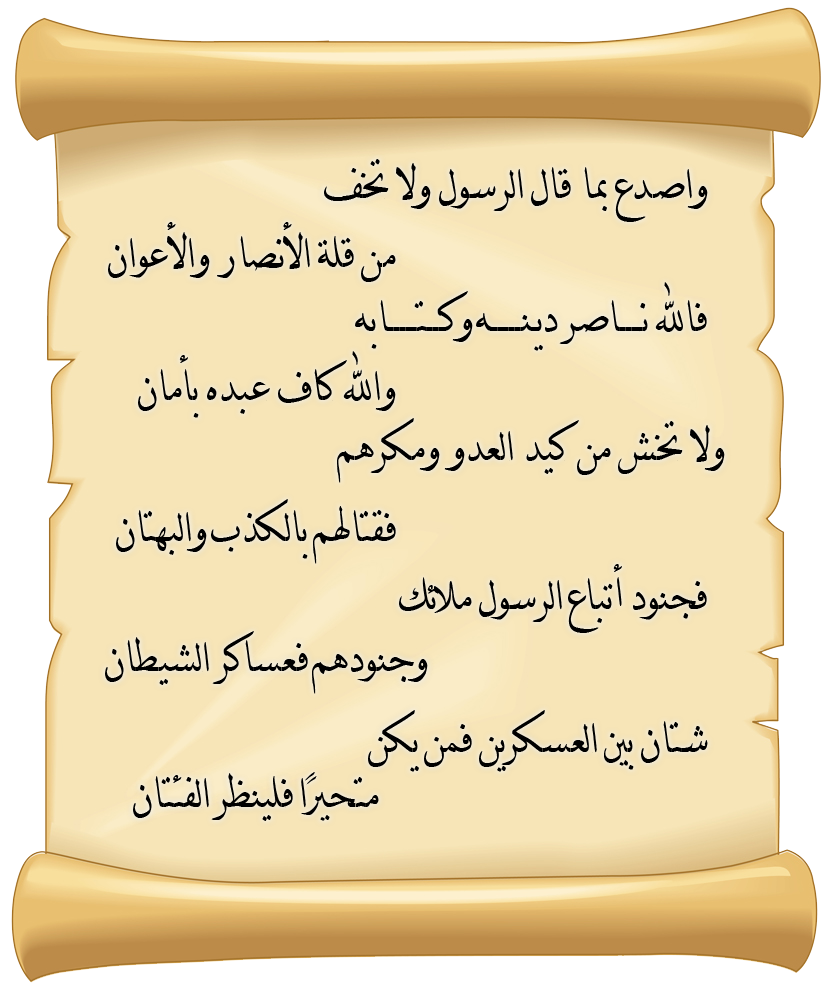 واصدع بما قال الرسول ولا تخف
من قلة الأنصار والأعوان
فالله نــاصر دينــه وكــتــابه
والله كاف عبده بأمان
ولا تخش من كيد العدو ومكرهم
فقتالهم بالكذب والبهتان
فجنود أتباع الرسول ملائك
وجنودهم فعساكر الشيطان
شتان بين العسكرين فمن يكن
متحيرًا فلينظر الفئتان